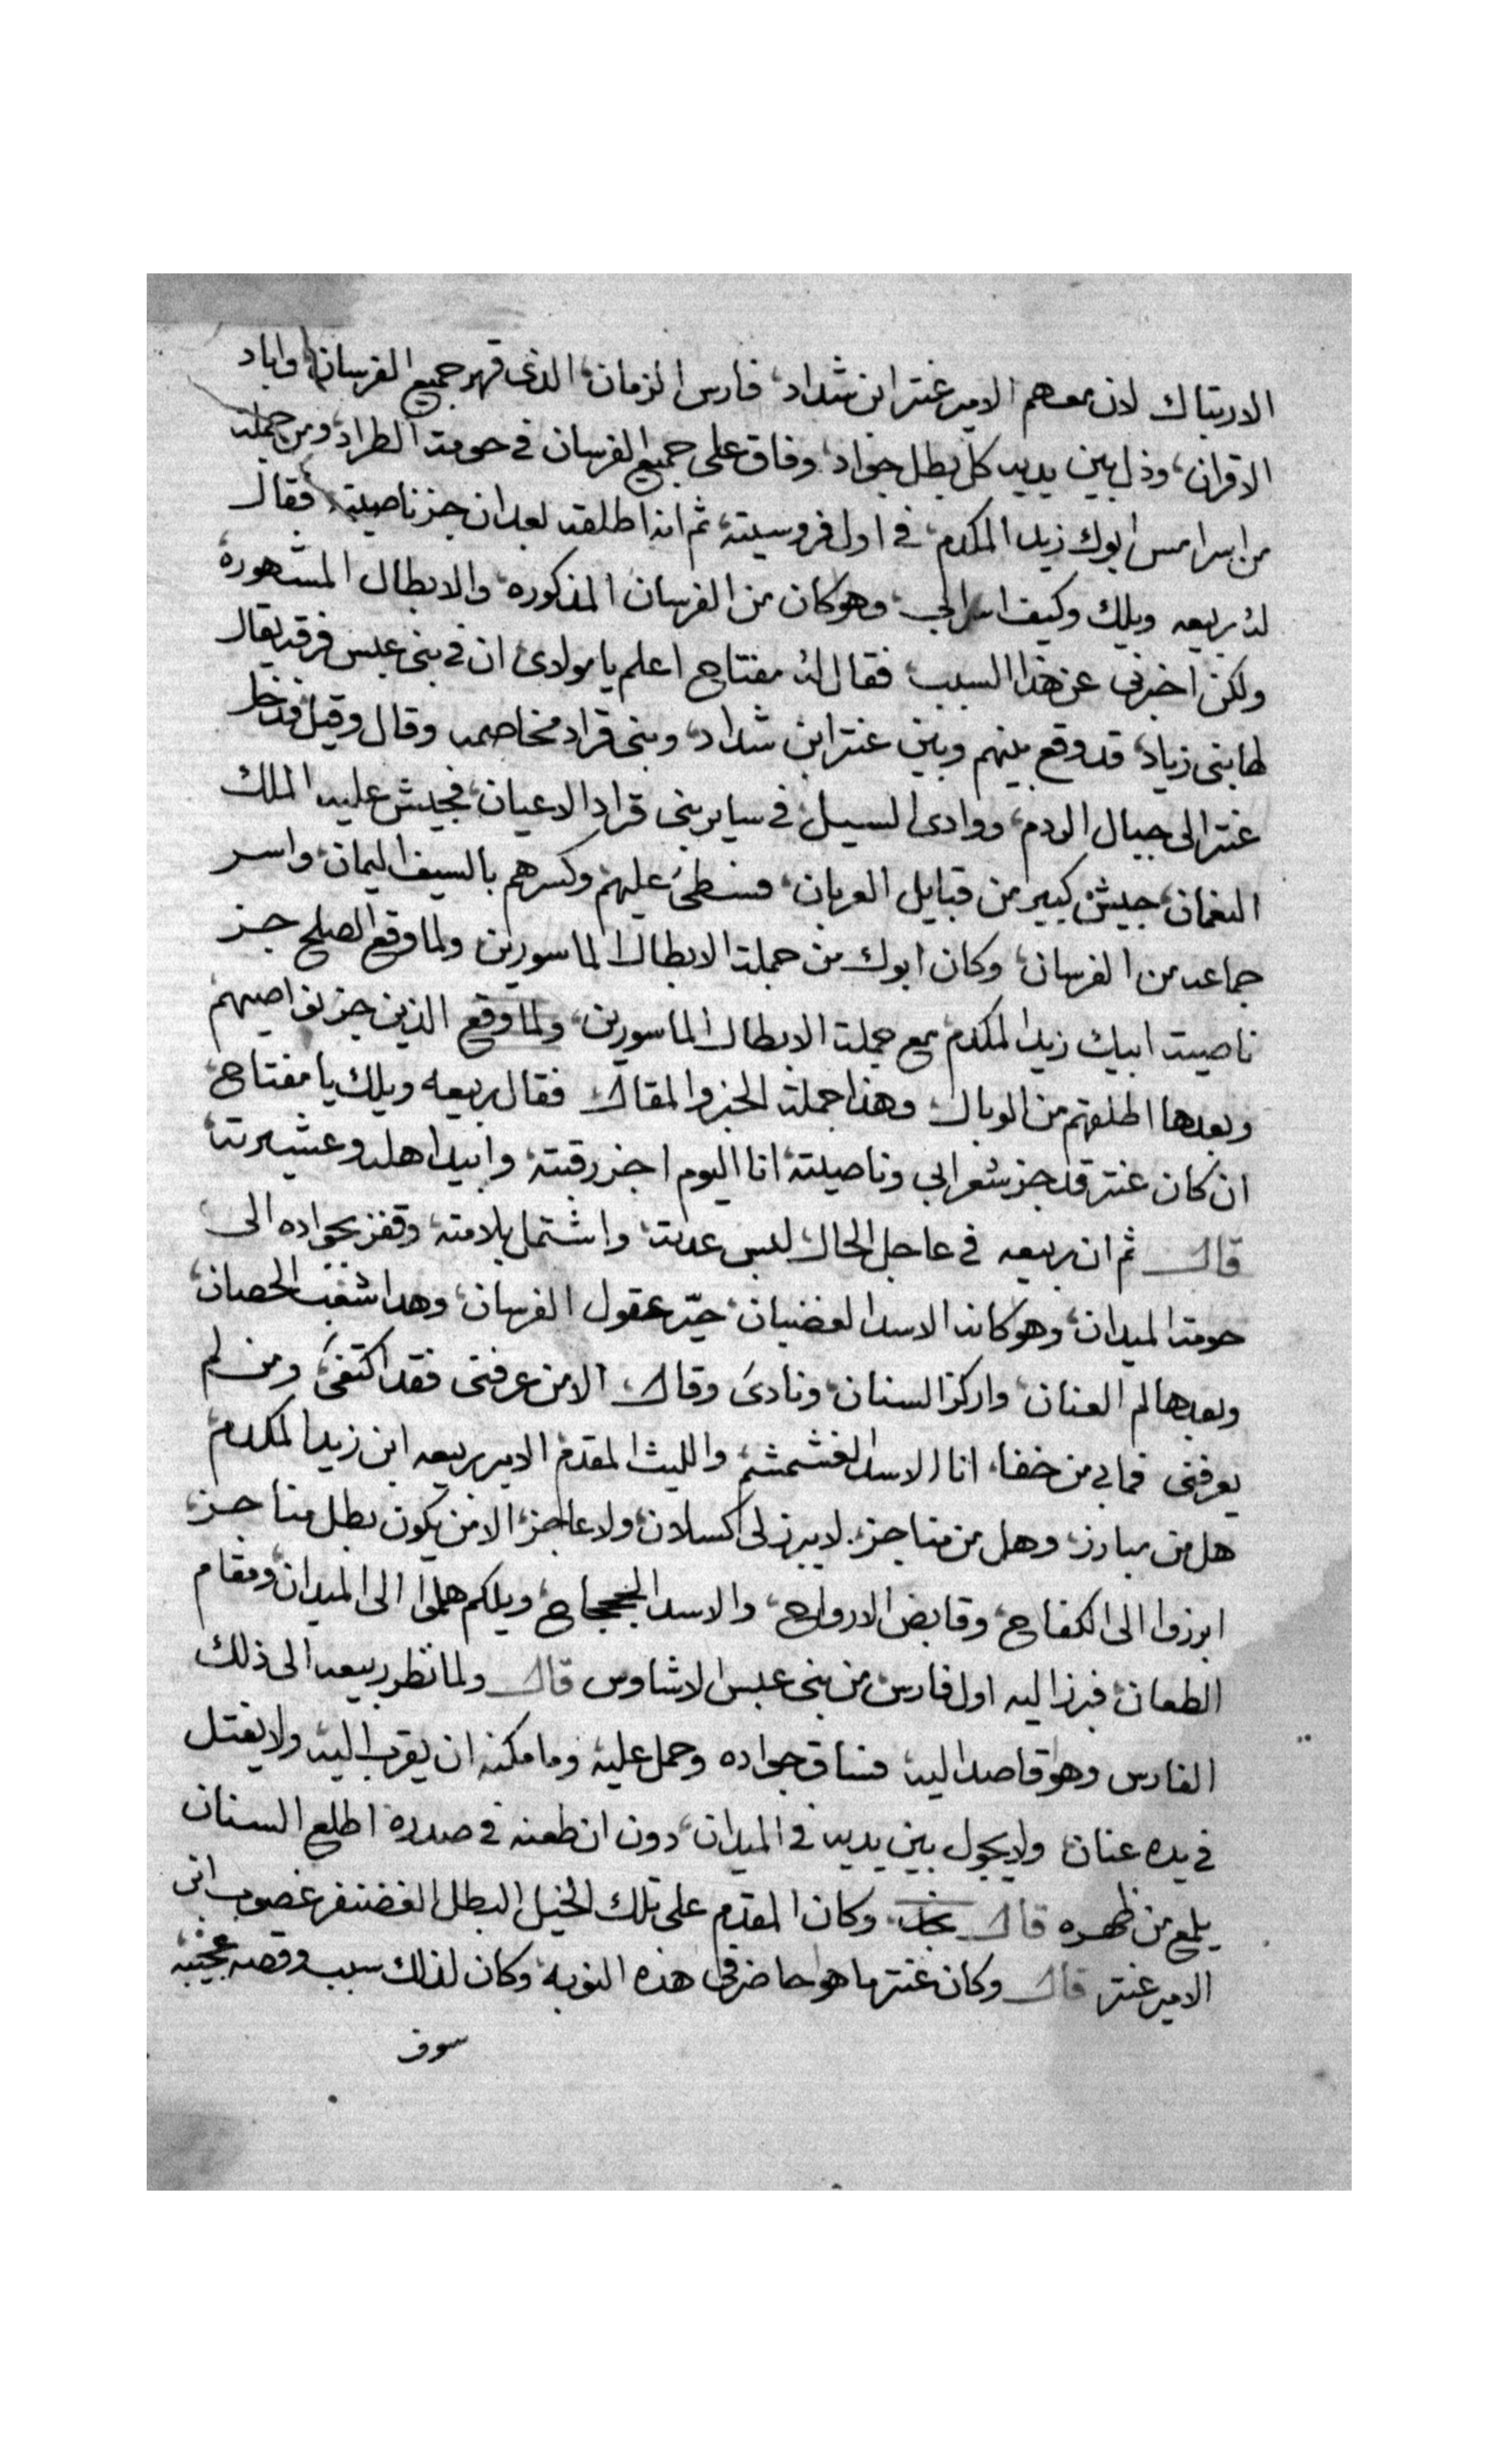 الارتباك لان معهم الامير عنتر ابن شداد، فارس الزمان، الذى قهر جميع الفرسان، واباد
الاقران، وذل بين يديه كل بطل جواد، وفاق على جميع الفرسان في حومة الطراد، ومن جملة
من اسر امس ابوك زيد المكدم، في اول فروسيته، ثم انه اطلقه بعد ان جز ناصيته، فقال
له ربيعه ويلك وكيف اسر ابي، وهو كان من الفرسان المذكوره، والابطال المشهوره،
ولكن اخبرنى عن هذا السبب، فقال له مفتاح اعلم يا مولاى ان في بنى عبس فرقه يقال
لها بنى زياد، قد وقع بينهم وبين عنتر ابن شداد، وبنى قراد مخاصمه وقال وقيل فدخل
عنتر الى جبال الردم، ووادى السيل، في ساير بنى قراد الاعيان، فجيش عليه الملك
النعمان، جيش كبير من قبايل العربان، فسطى عليهم وكسرهم بالسيف اليمان، واسر
جماعه من الفرسان، وكان ابوك من جملة الابطال الماسورين ولما وقع الصلح جز
ناصيت ابيك زيد المكدم، مع جملة الابطال الماسورين، ولما وقع الذين جز نواصيهم
وبعدها اطلقهم من الوبال، وهذا جملة الخبر والمقال، فقال ربيعه ويلك يا مفتاح،
ان كان عنتر قد جز شعر ابي وناصيته، انا اليوم اجز رقبته، وابيد اهله وعشيرته،
قال ثم ان ربيعه في عاجل الحال لبس عدته، واشتمل بلامته، وقفز بجواده الى
حومة الميدان، وهو كانه الاسد الغضبان، حيّر عقول الفرسان، وهدا شغب الحصان،
وبعدها لم العنان، واركز السنان، ونادى وقال، الا من عرفنى فقد اكتفى، ومن لم
يعرفنى فمابي من خفا، انا الاسد الغشمشم، والليث المقدم، الامير ربيعه ابن زيد المكدم،
هل من مبارز، وهل من مناجز، لا يبرز لى اكسلان، ولا عاجز، الا من يكون بطل مناجز،
ابرزوا الى الكفاح، وقابض الارواح، والاسد الجحجاح، ويلكم هلموا الى الميدان، ومقام
الطعان، فبرز اليه اول فارس، من بنى عبس الاشاوس قال ولما نظر ربيعه الى ذلك
الفارس وهو قاصد اليه، فساق جواده وحمل عليه، وما مكنه ان يقرب اليه، ولا يفتل
في يده عنان، ولا يجول بين يديه في الميدان، دون ان طعنه في صدره، اطلع السنان
يلمع من ظهره قال نجد، وكان المقدم على تلك الخيل البطل الغضنفر غصوب ابن
الامير عنتر قال وكان عنتر ما هو حاضر في هذه النوبه، وكان لذلك سبب وقصه عجيبه،
سوف